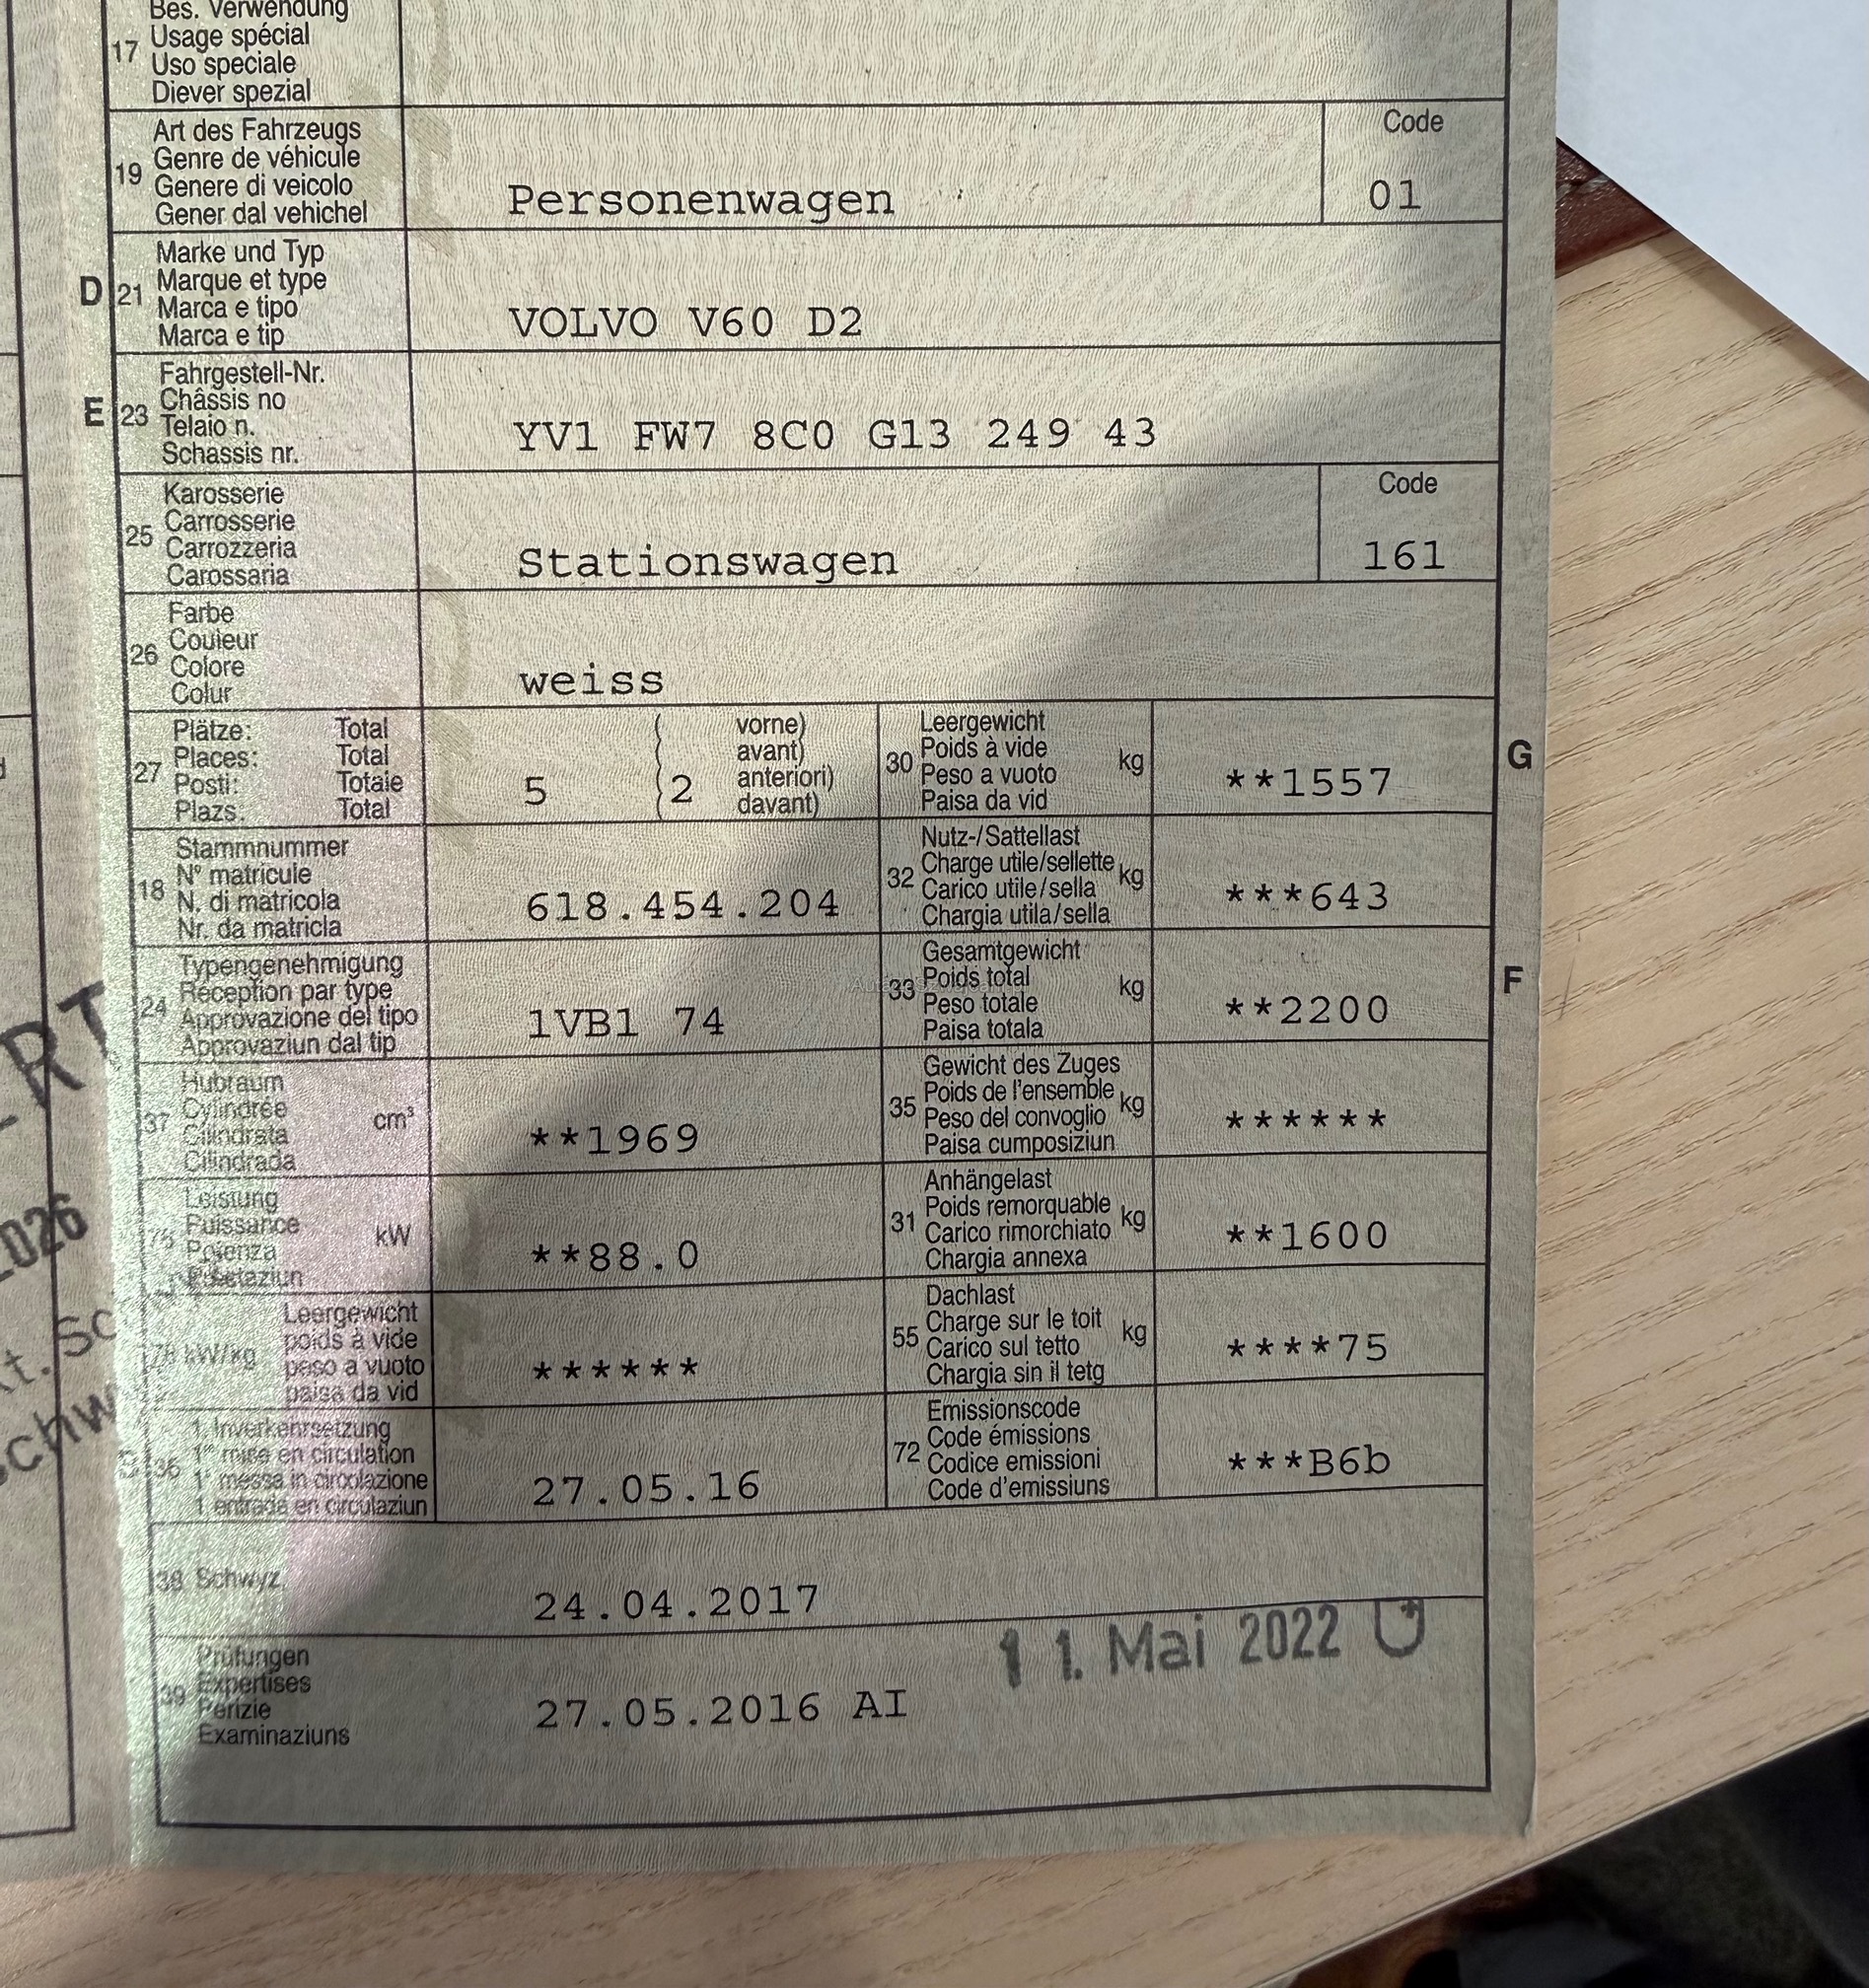 Bes. Verwendung
17 Usage spécial
Uso speciale
Diever spezial
Art des Fahrzeugs
19 Genre de véhicule
Genere di veicolo
Gener dal vehichel
Personenwagen
Code
01
Marke und Typ
D 21 Marque et type
Marca e tipo
Marca e tip
VOLVO V60 D2
Fahrgestell-Nr.
E 23 Châssis no
Telaio n.
Schassis nr.
YV1 FW7 8C0 G13 249 43
Karosserie
25 Carrosserie
Carrozzeria
Carossaria
Stationswagen
Code
161
Farbe
26 Couleur
Colore
Colur
weiss
Plätze: Total
27 Places: Total
Posti: Totale
Plazs. Total
5 ( 2 vorne)
avant)
anteriori)
davant)
Leergewicht
30 Poids à vide kg
Peso a vuoto
Paisa da vid
**1557
G
Stammnummer
18 N° matricule
N. di matricola
Nr. da matricla
618.454.204
Nutz-/Sattellast
32 Charge utile/sellette kg
Carico utile/sella
Chargia utila/sella
***643
Typengenehmigung
24 Réception par type
Approvazione del tipo
Approvaziun dal tip
1VB1 74
Gesamtgewicht
33 Poids total kg
Peso totale
Paisa totala
**2200
F
Hubraum
37 Cylindrée cm³
Cilindrata
Cilindrada
**1969
Gewicht des Zuges
35 Poids de l'ensemble kg
Peso del convoglio
Paisa cumposiziun
******
Leistung
Puissance kW
Potenza
**88.0
Anhängelast
31 Poids remorquable kg
Carico rimorchiato
Chargia annexa
**1600
Leergewicht
poids à vide
78 kW/kg peso a vuoto
paisa da vid
******
Dachlast
55 Charge sur le toit kg
Carico sul tetto
Chargia sin il tetg
****75
1. Inverkehrsetzung
36 1re mise en circulation
1a messa in circolazione
1 entrada en circulaziun
27.05.16
Emissionscode
72 Code émissions
Codice emissioni
Code d'emissiuns
***B6b
38 Schwyz,
24.04.2017
11. Mai 2022
Prüfungen
39 Expertises
Perizie
Examinaziuns
27.05.2016 AI